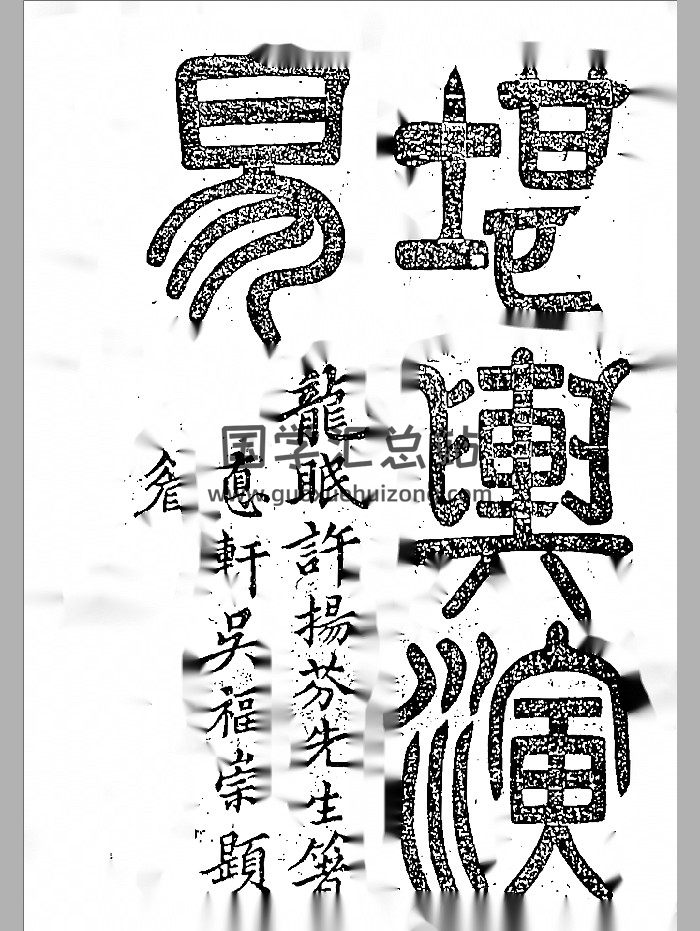 堪輿演
易
龍眠許揚芬先生著
軒吳福崇題
簽
国学汇总站
www.guoxuehuizong.com